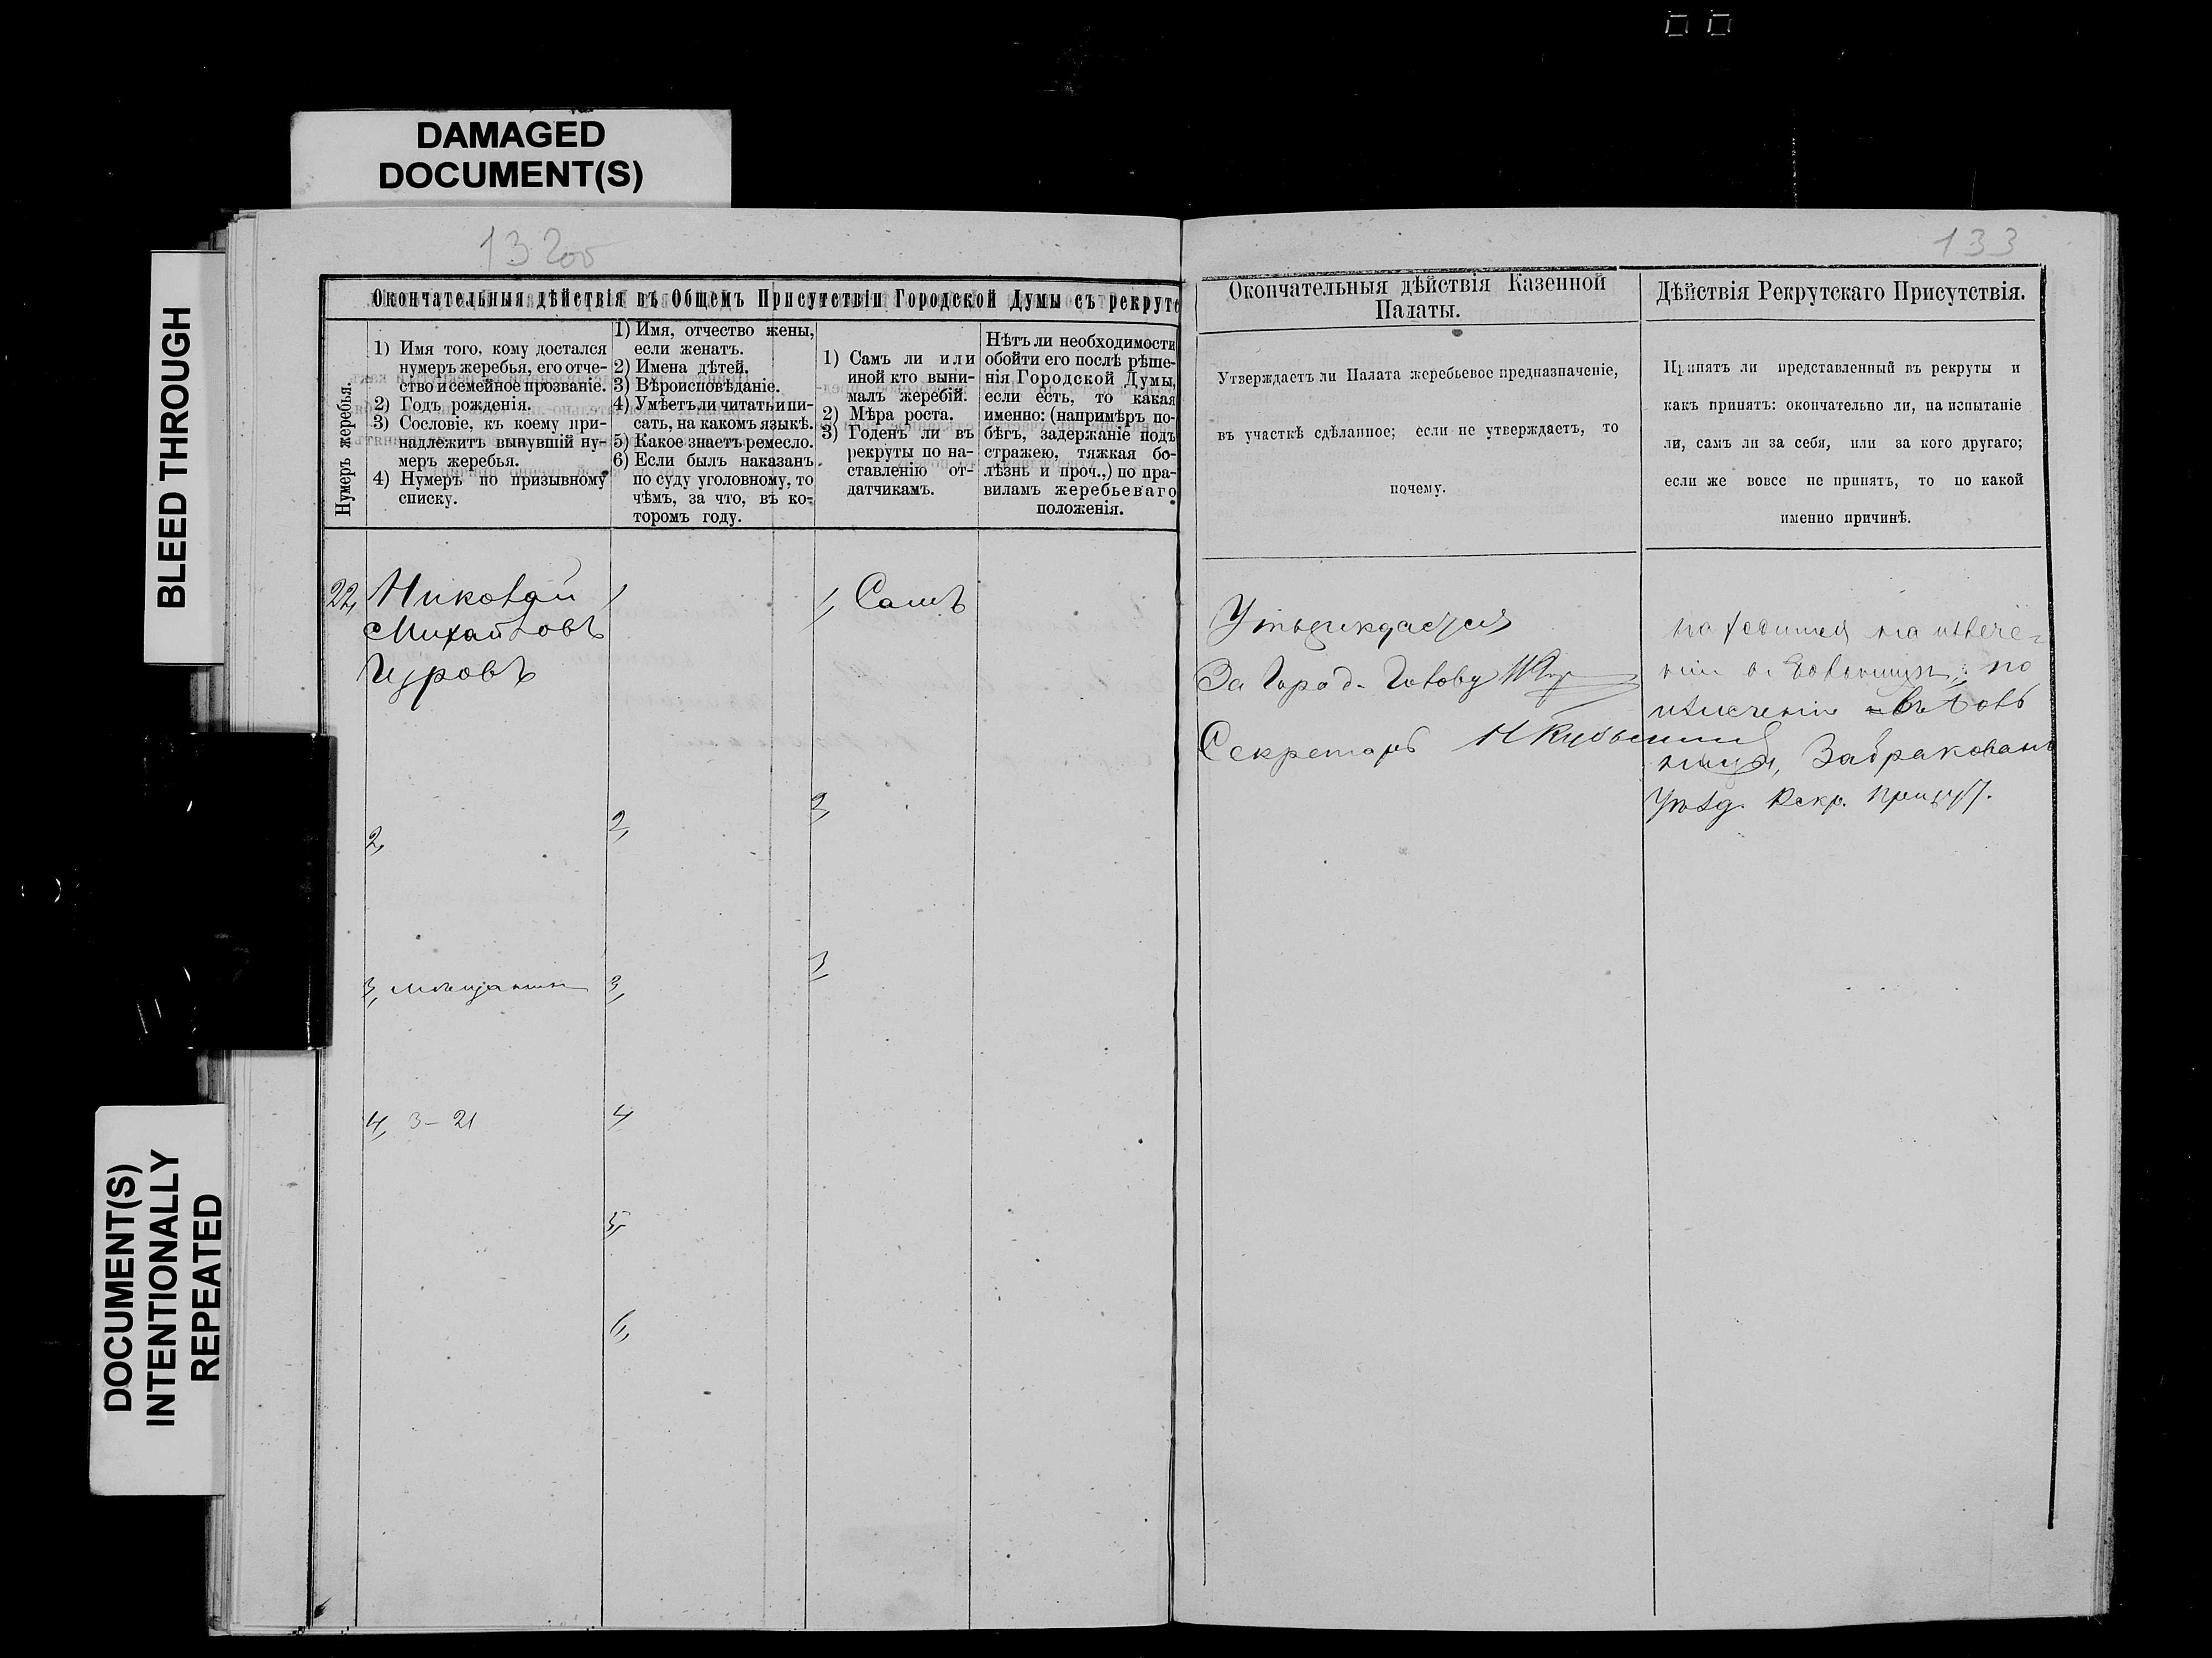 DAMAGED
DOCUMENT(S)
BLEED THROUGH
DOCUMENT(S)
INTENTIONALLY
REPEATED
132об
Окончательныя дѣйствія въ Общемъ Присутствіи Городской Думы съ рекруто
Нумеръ жеребья.
1) Имя того, кому достался
нумеръ жеребья, его отче-
ство и семейное прозваніе.
2) Годъ рожденія.
3) Сословіе, къ коему при-
надлежитъ вынувшій ну-
меръ жеребья.
4) Нумеръ по призывному
списку.
1) Имя, отчество жены,
если женатъ.
2) Имена дѣтей.
3) Вѣроисповѣданіе.
4) Умѣетъ ли читать и пи-
сать, на какомъ языкѣ.
5) Какое знаетъ ремесло.
6) Если былъ наказанъ
по суду уголовному, то
чѣмъ, за что, въ ко-
торомъ году.
1) Самъ ли или
иной кто выни-
малъ жеребій.
2) Мѣра роста.
3) Годенъ ли въ
рекруты по на-
ставленію от-
датчикамъ.
Нѣтъ ли необходимости
обойти его послѣ рѣше-
нія Городской Думы,
если есть, то какая
именно: (напримѣръ по-
бѣгъ, задержаніе подъ
стражею, тяжкая бо-
лѣзнь и проч.,) по пра-
виламъ жеребьеваго
положенія.
22, Николай
Михайловъ
Гуровъ
2,
3, мѣщанинъ
4, 3-21
1
2,
3,
4
5,
6,
1, Самъ
2,
3,
133
Окончательныя дѣйствія Казенной
Палаты.
Утверждаетъ ли Палата жеребьевое предназначеніе,
въ участкѣ сдѣланное; если не утверждаетъ, то
почему.
Утверждается
За Город. Голову
Секретарь
Дѣйствія Рекрутскаго Присутствія.
Принятъ ли представленный въ рекруты и
какъ принятъ: окончательно ли, на испытаніе
ли, самъ ли за себя, или за кого другаго;
если же вовсе не принятъ, то по какой
именно причинѣ.
находился на излече-
ніи въ больницѣ; по
излеченіи въ боль
ницѣ, Забракованъ
Уѣзд. Рекр. Присут.